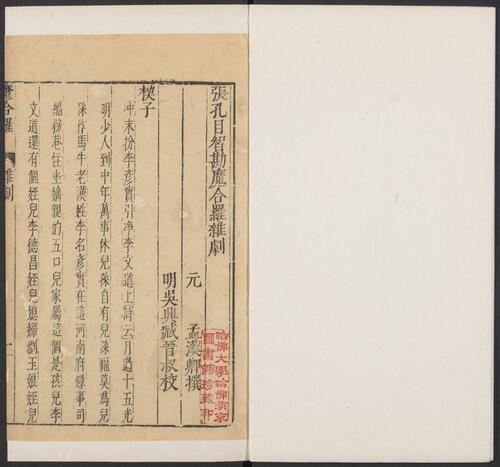 張孔目智勘魔合羅雜劇
元 孟漢卿撰
明吳興臧晉叔校
楔子
冲末扮李彥實引淨李文道上詩云月過十五光
明少人到中年萬事休兒孫自有兒孫福莫爲兒
孫作馬牛老漢姓李名彥實在這河南府錄事司
醋務巷住坐嫡親的五口兒家屬這個是孩兒李
文道還有個姪兒李德昌姪兒媳婦劉玉娘姪兒
魔合羅
雜劇
一
哈佛大學哈佛燕京
圖書館珍藏印